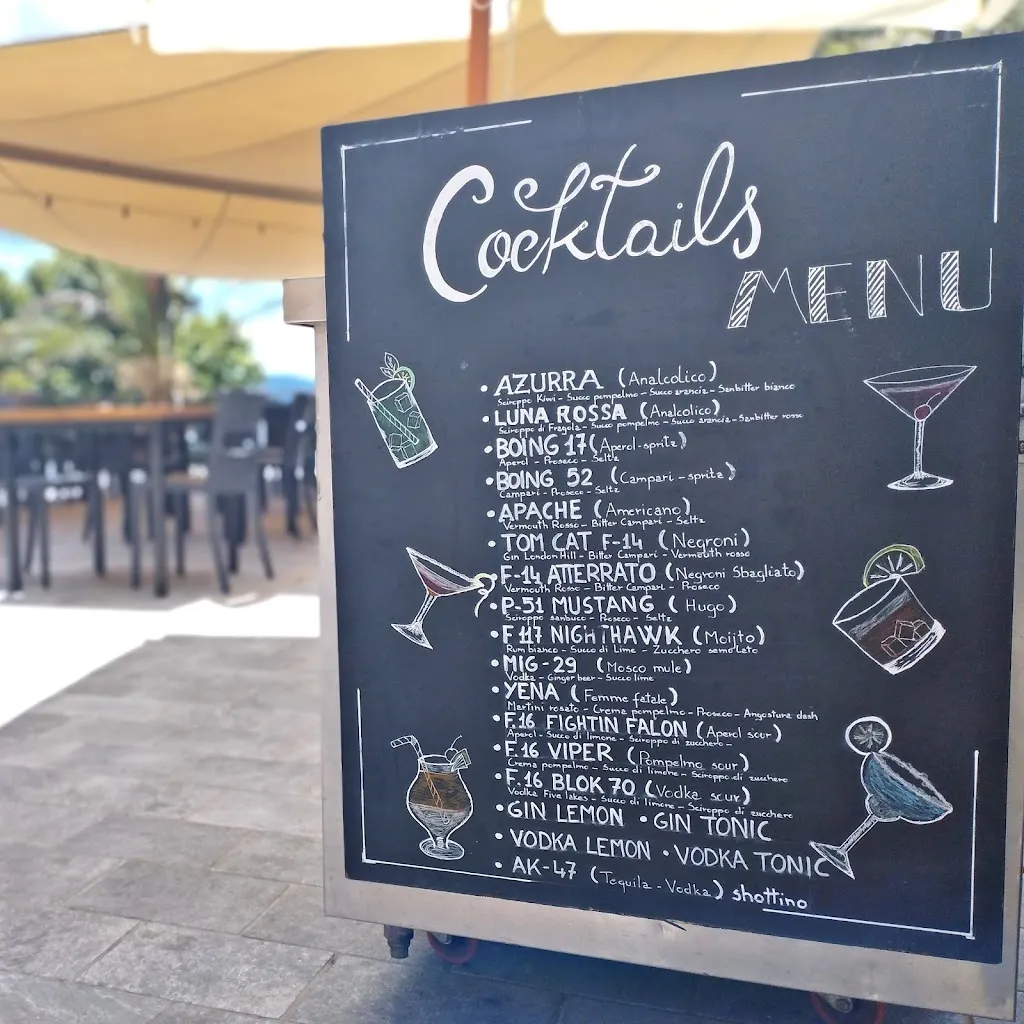 Cocktails
MENU
• AZURRA (Analcolico)
Sciroppo Kiwi - Succo pompelmo - Succo arancia - Sanbitter bianco
• LUNA ROSSA (Analcolico)
Sciroppo di Fragola - Succo pompelmo - Succo arancia - Sanbitter rosso
• BOING 17 (Aperol-spritz)
Aperol - Prosecco - Seltz
• BOING 52 (Campari-spritz)
Campari - Prosecco - Seltz
• APACHE (Americano)
Vermouth Rosso - Bitter Campari - Seltz
• TOM CAT F-14 (Negroni)
Gin London Hill - Bitter Campari - Vermouth rosso
• F-14 ATTERRATO (Negroni Sbagliato)
Vermouth Rosso - Bitter Campari - Prosecco
• P-51 MUSTANG (Hugo)
Sciroppo sanbuco - Prosecco - Seltz
• F 117 NIGHTHAWK (Moijto)
Rum bianco - Succo di Lime - Zucchero semolato
• MIG-29 (Mosco mule)
Vodka - Ginger beer - Succo lime
• YENA (Femme fatale)
Martini rosato - Crema pompelmo - Prosecco - Angostura dash
• F.16 FIGHTIN FALON (Aperol sour)
Aperol - Succo di limone - Sciroppo di zucchero -
• F.16 VIPER (Pompelmo sour)
Crema pompelmo - Succo di limone - Sciroppo di zucchero
• F.16 BLOK 70 (Vodka sour)
Vodka Five lakes - Succo di limone - Sciroppo di zucchero
• GIN LEMON • GIN TONIC
• VODKA LEMON • VODKA TONIC
• AK-47 (Tequila - Vodka) shottino